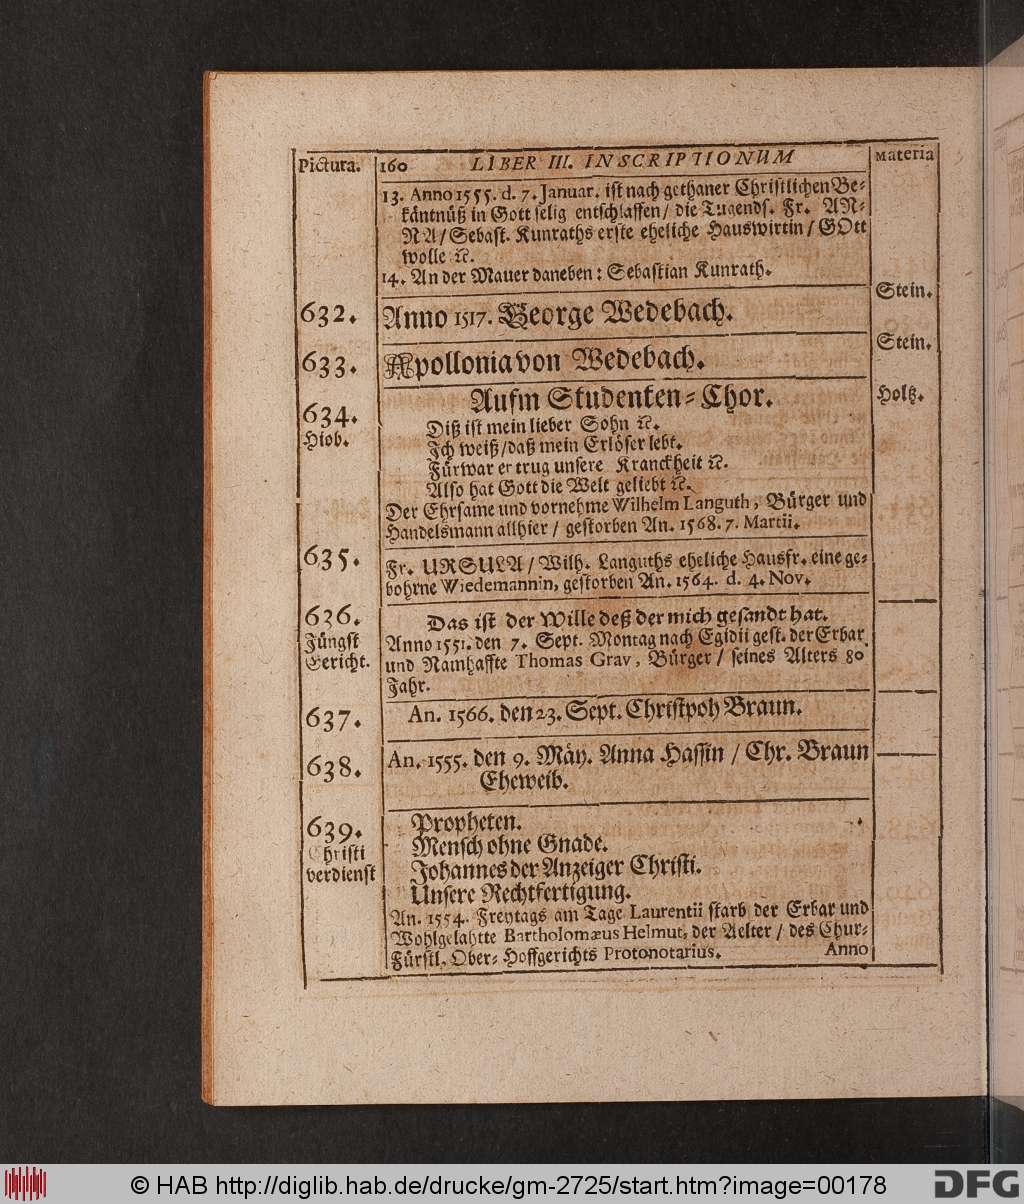 Pictura. 160 LIBER III. INSCRIPTIONUM Materia
13. Anno 1555. d. 7. Januar. ist nach gethaner Christlichen Be-
käntnüß in Gott selig entschlaffen/ die Tugends. Fr. AN-
NA/ Sebast. Kunraths erste eheliche Hauswirtin/ GOtt
wolle ꝛc.
14. An der Mauer daneben: Sebastian Kunrath.
632. Anno 1517. George Wedebach. Stein.
633. Apollonia von Wedebach. Stein.
634. Aufm Studenten-Chor. Holtz.
Hiob. Diß ist mein lieber Sohn ꝛc.
Ich weiß/ daß mein Erlöser lebt.
Fürwar er trug unsere Kranckheit ꝛc.
Also hat Gott die Welt geliebt ꝛc.
Der Ehrsame und vornehme Wilhelm Languth, Bürger und
Handelsmann allhier/ gestorben An. 1568. 7. Martii.
635. Fr. URSULA/ Wilh. Languths eheliche Hausfr. eine ge-
bohrne Wiedemannin, gestorben An. 1564. d. 4. Nov.
636. Das ist der Wille deß der mich gesandt hat.
Jüngst Anno 1551. den 7. Sept. Montag nach Egidii gest. der Erbar
Gericht. und Namhaffte Thomas Grav, Bürger/ seines Alters 80
Jahr.
637. An. 1566. den 23. Sept. Christpoh Braun.
638. An. 1555. den 9. Mäy. Anna Hassin/ Chr. Braun
Eheweib.
639. Propheten.
Christi Mensch ohne Gnade.
verdienst Johannes der Anzeiger Christi.
Unsere Rechtfertigung.
An. 1554. Freytags am Tage Laurentii starb der Erbar und
Wohlgelahtte Bartholomæus Helmut, der Aelter/ des Chur-
Fürstl. Ober-Hoffgerichts Protonotarius. Anno
© HAB http://diglib.hab.de/drucke/gm-2725/start.htm?image=00178 DFG